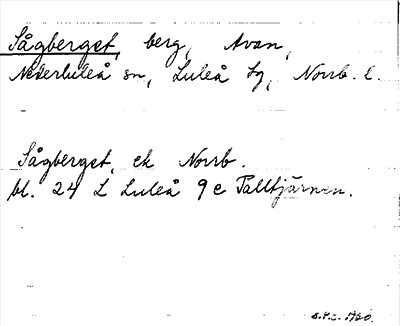 Sågberget, berg, Avan,
Nederluleå sn, Luleå tg, Norrb. l.
Sågberget, ek Norrb.
bl. 24 L Luleå 9 e Talltjärnen.
1960.